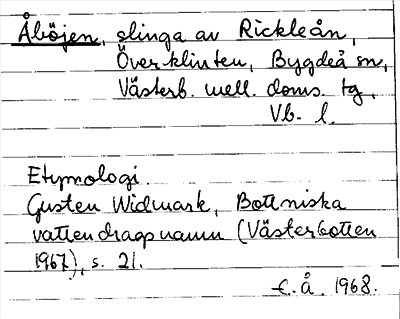 Åböjen, slinga av Rickleån,
Överklinten, Bygdeå sn,
Västerb. mell. doms. tg,
Vb. l.
Etymologi.
Gusten Widmark, Bottniska
vattendragsnamn (Västerbotten
1967), s. 21.
E. Å. 1968.